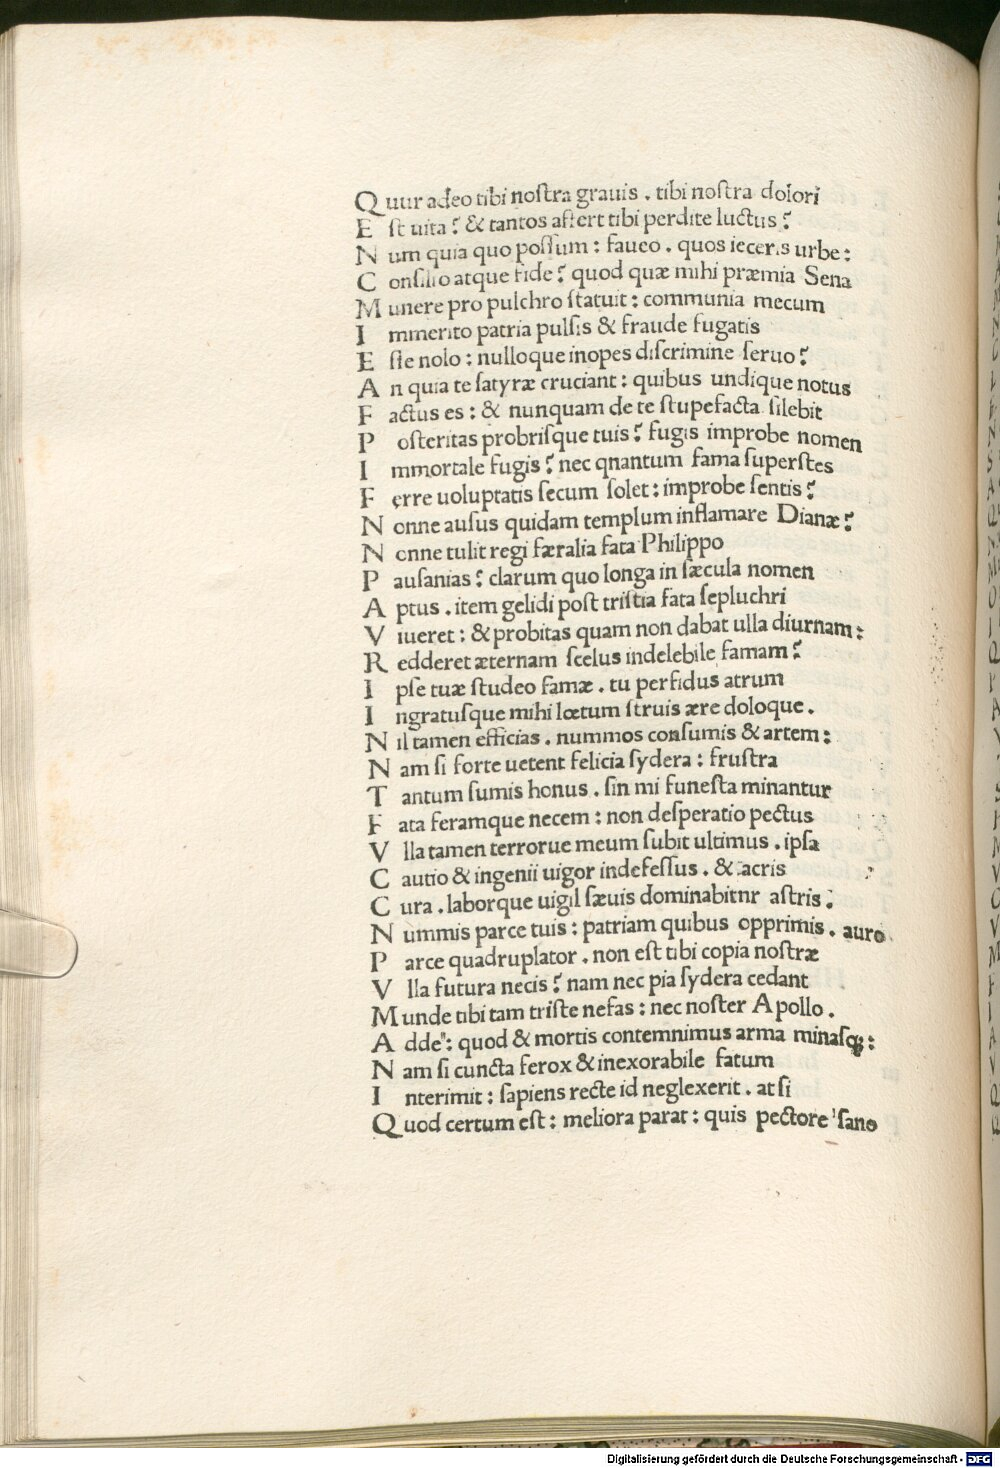 Quur adeo tibi noſtra grauis . tibi noſtra dolori
Eſt uita ? & tantos affert tibi perdite luctus ?
Num quia quo poſſum : faueo . quos ieceris urbe :
Conſilio atque fide ? quod quæ mihi præmia Sena
Munere pro pulchro ſtatuit : communia mecum
Immerito patria pulſis & fraude fugatis
Eſſe nolo : nulloque inopes diſcrimine ſeruo ?
An quia te ſatyræ cruciant : quibus undique notus
Factus es : & nunquam de te ſtupefacta ſilebit
Poſteritas probriſque tuis ? fugis improbe nomen
Immortale fugis ? nec qnantum fama ſuperſtes
Ferre uoluptatis ſecum ſolet : improbe ſentis ?
Nonne auſus quidam templum inflamare Dianæ ?
Nonne tulit regi færalia fata Philippo
Pauſanias ? clarum quo longa in ſæcula nomen
Aptus . item gelidi poſt triſtia fata ſepluchri
Viueret : & probitas quam non dabat ulla diurnam :
Redderet æternam ſcelus indelebile famam ?
Ipſe tuæ ſtudeo famæ . tu perfidus atrum
Ingratuſque mihi lœtum ſtruis ære doloque .
Nil tamen efficias . nummos conſumis & artem :
Nam ſi forte uetent felicia ſydera : fruſtra
Tantum ſumis honus . ſin mi funeſta minantur
Fata feramque necem : non deſperatio pectus
Vlla tamen terrorue meum ſubit ultimus . ipſa
Cautio & ingenii uigor indefeſſus . & acris
Cura . laborque uigil ſæuis dominabitnr aſtris .
Nummis parce tuis : patriam quibus opprimis . auro
Parce quadruplator . non eſt tibi copia noſtræ
Vlla futura necis ? nam nec pia ſydera cedant
Munde tibi tam triſte nefas : nec noſter Apollo .
Adde : quod & mortis contemnimus arma minaſqꝫ :
Nam ſi cuncta ferox & inexorabile fatum
Interimit : ſapiens recte id neglexerit . at ſi
Quod certum eſt : meliora parat : quis pectore ſano
Digitalisierung gefördert durch die Deutsche Forschungsgemeinschaft - DFG